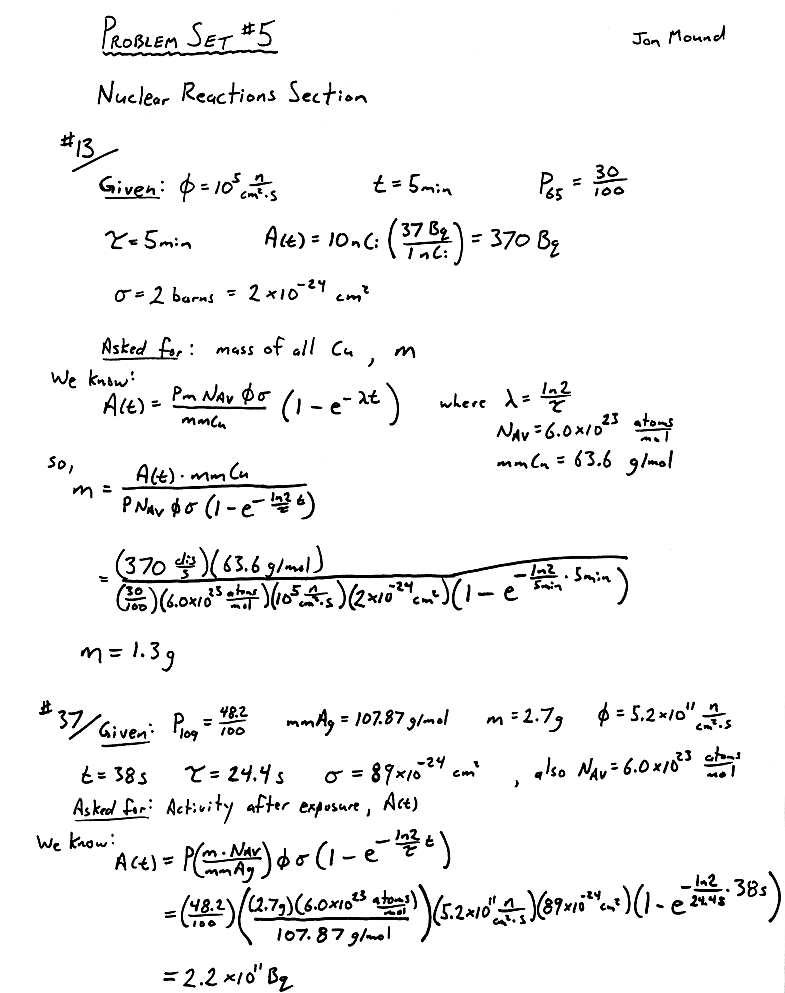 PROBLEM SET #5 Jon Mound
Nuclear Reactions Section
#13/
Given: ϕ = 10⁵ n/cm²·s t = 5min P₆₅ = 30/100
τ = 5min A(t) = 10nCi (37 Bq/1 nCi) = 370 Bq
σ = 2 barns = 2×10⁻²⁴ cm²
Asked for: mass of all Cu, m
We know:
A(t) = Pm N_AV ϕσ/mmCu (1 - e^(-λt)) where λ = ln2/τ
N_AV = 6.0×10²³ atoms/mol
mmCu = 63.6 g/mol
so,
m = A(t)·mmCu/P N_AV ϕσ (1 - e^(-ln2/τ t))
= (370 dis/s)(63.6 g/mol)/(30/100)(6.0×10²³ atoms/mol)(10⁵ n/cm²·s)(2×10⁻²⁴ cm²)(1 - e^(-ln2/5min · 5min))
m = 1.3g
#37/ Given: P₁₀₉ = 48.2/100 mmAg = 107.87 g/mol m = 2.7g ϕ = 5.2×10¹¹ n/cm²·s
t = 38s τ = 24.4s σ = 89×10⁻²⁴ cm², also N_AV = 6.0×10²³ atoms/mol
Asked for: Activity after exposure, A(t)
We know:
A(t) = P(m·N_AV/mmAg) ϕσ (1 - e^(-ln2/τ t))
= (48.2/100)((2.7g)(6.0×10²³ atoms/mol)/107.87 g/mol)(5.2×10¹¹ n/cm²·s)(89×10⁻²⁴ cm²)(1 - e^(-ln2/24.4s · 38s))
= 2.2×10¹¹ Bq